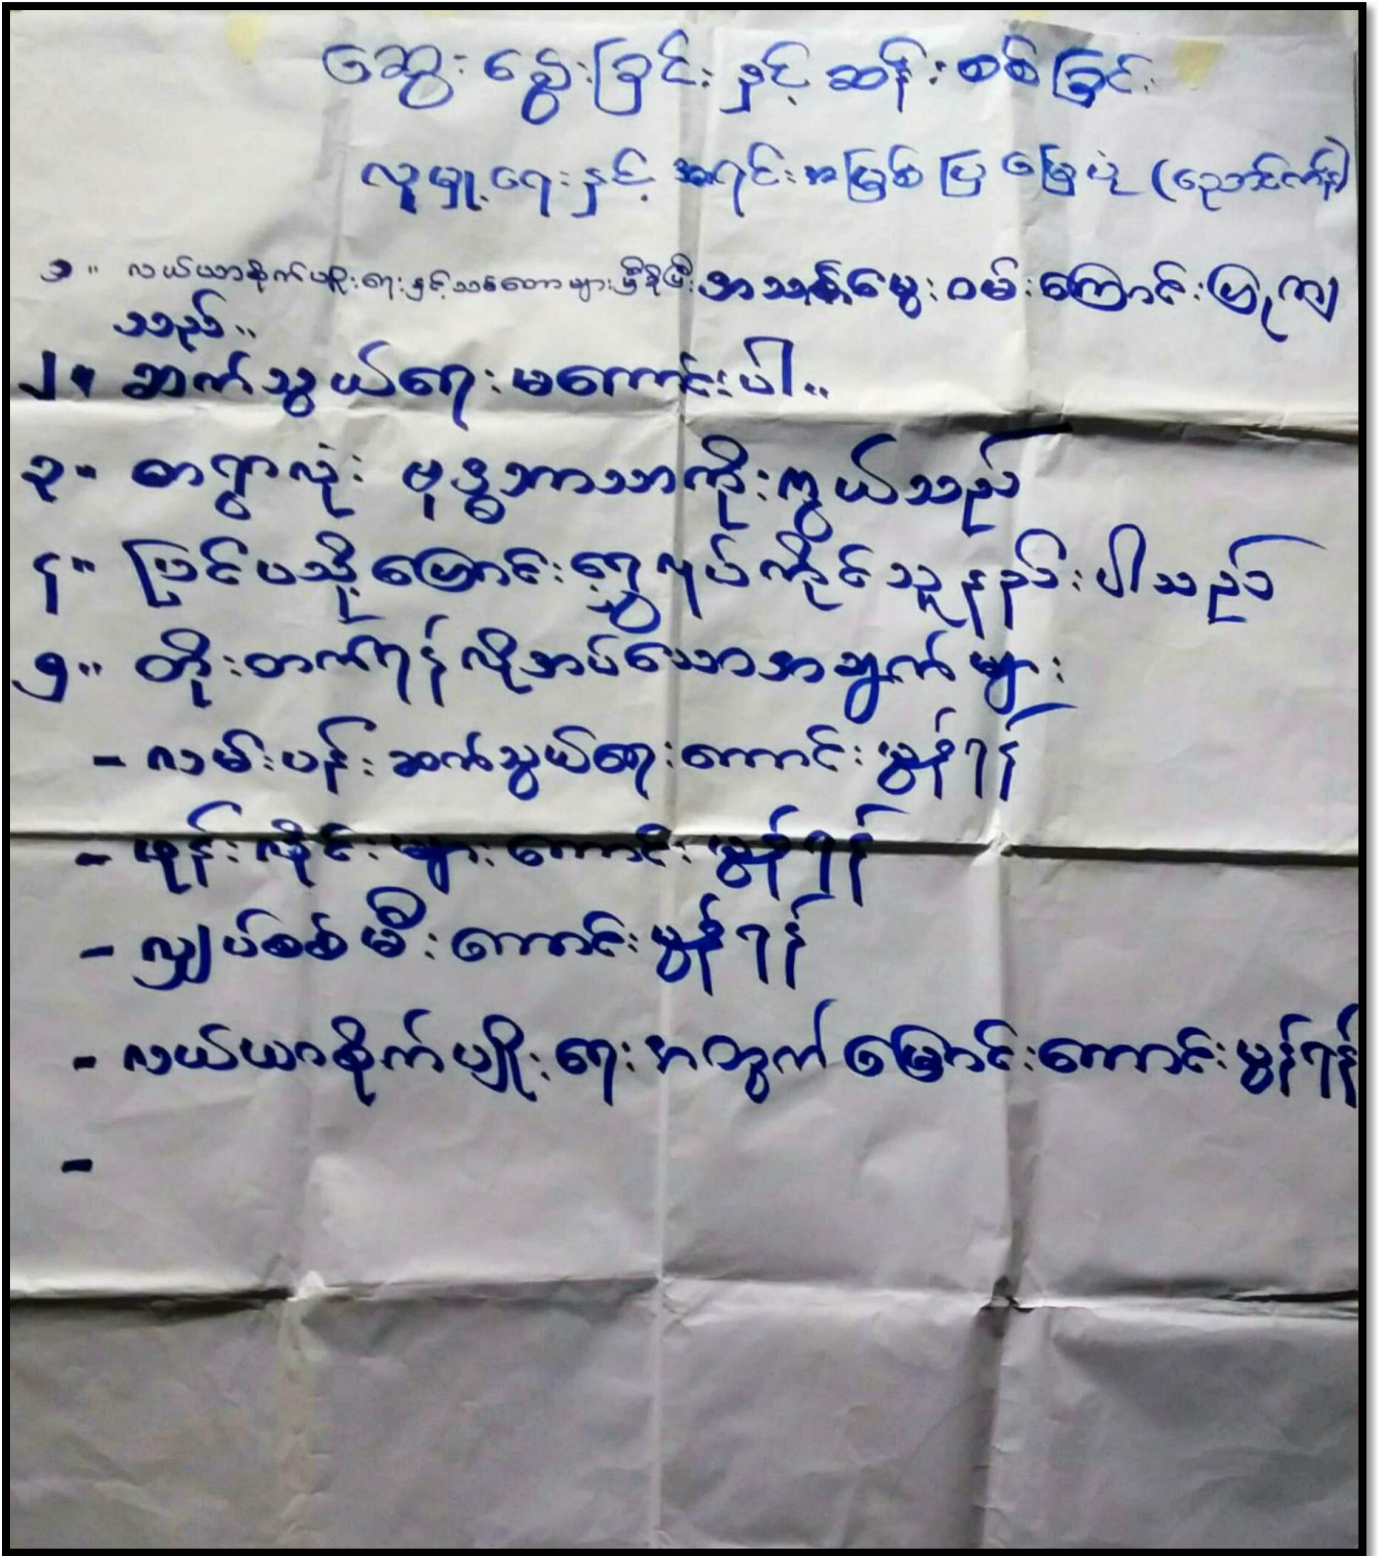 ဆွေးနွေးခြင်းနှင့် ဆန်းစစ်ခြင်း
လူမှုရေးနှင့် အရင်းအမြစ်ပြ မြေပုံ (ညောင်ကန်)
၁။ လယ်ယာစိုက်ပျိုးရေးနှင့်သစ်တောများမှီခိုပြီး အသက်မွေးဝမ်းကြောင်းပြုကြ
သည်။
၂။ ဆက်သွယ်ရေးမကောင်းပါ။
၃။ တရွာလုံး ဗုဒ္ဓဘာသာကိုးကွယ်သည်
၄။ ပြင်ပသို့ပြောင်းရွှေ့လုပ်ကိုင်သူနည်းပါသည်
၅။ တိုးတက်ရန်လိုအပ်သောအချက်များ
- လမ်းပန်းဆက်သွယ်ရေးကောင်းမွန်ရန်
- ဖုန်းလိုင်းများကောင်းမွန်ရန်
- လျှပ်စစ်မီးကောင်းမွန်ရန်
- လယ်ယာစိုက်ပျိုးရေးအတွက်မြောင်းကောင်းမွန်ရန်
-